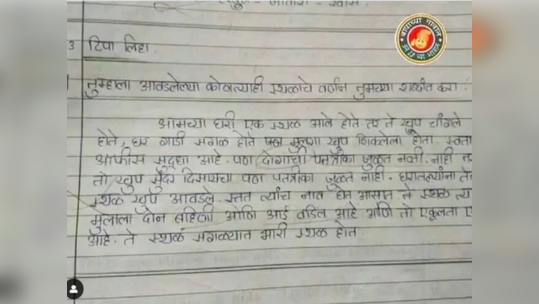 3 टिपा लिहा.
तुम्हाला आवडलेल्या कोणत्याही स्थळाचे वर्णन तुमच्या शब्दांत करा
आमच्या घरी एक स्थळ आले होते तर ते खुप चांगले
होते, घर गाडी सगळ होते पण मुलगा खुप शिकलेला होता. स्वता
ऑफीस सुद्धा आहे. पण दोघाची पत्रीका जुळत नव्ती. नाही
तो खुप सुंदर दिसायचा पण पतत्रीका जुळत नाही.
स्थळ खुप आवडले. सतत त्यांच नाव घेत आसात ते स्थळ त्य
मुलाला दोन बहिणी आणि आई वडिल आहे आणि तो एकूलता ए
आहे. ते स्थळं सगळ्यात भारी स्थळ होत.